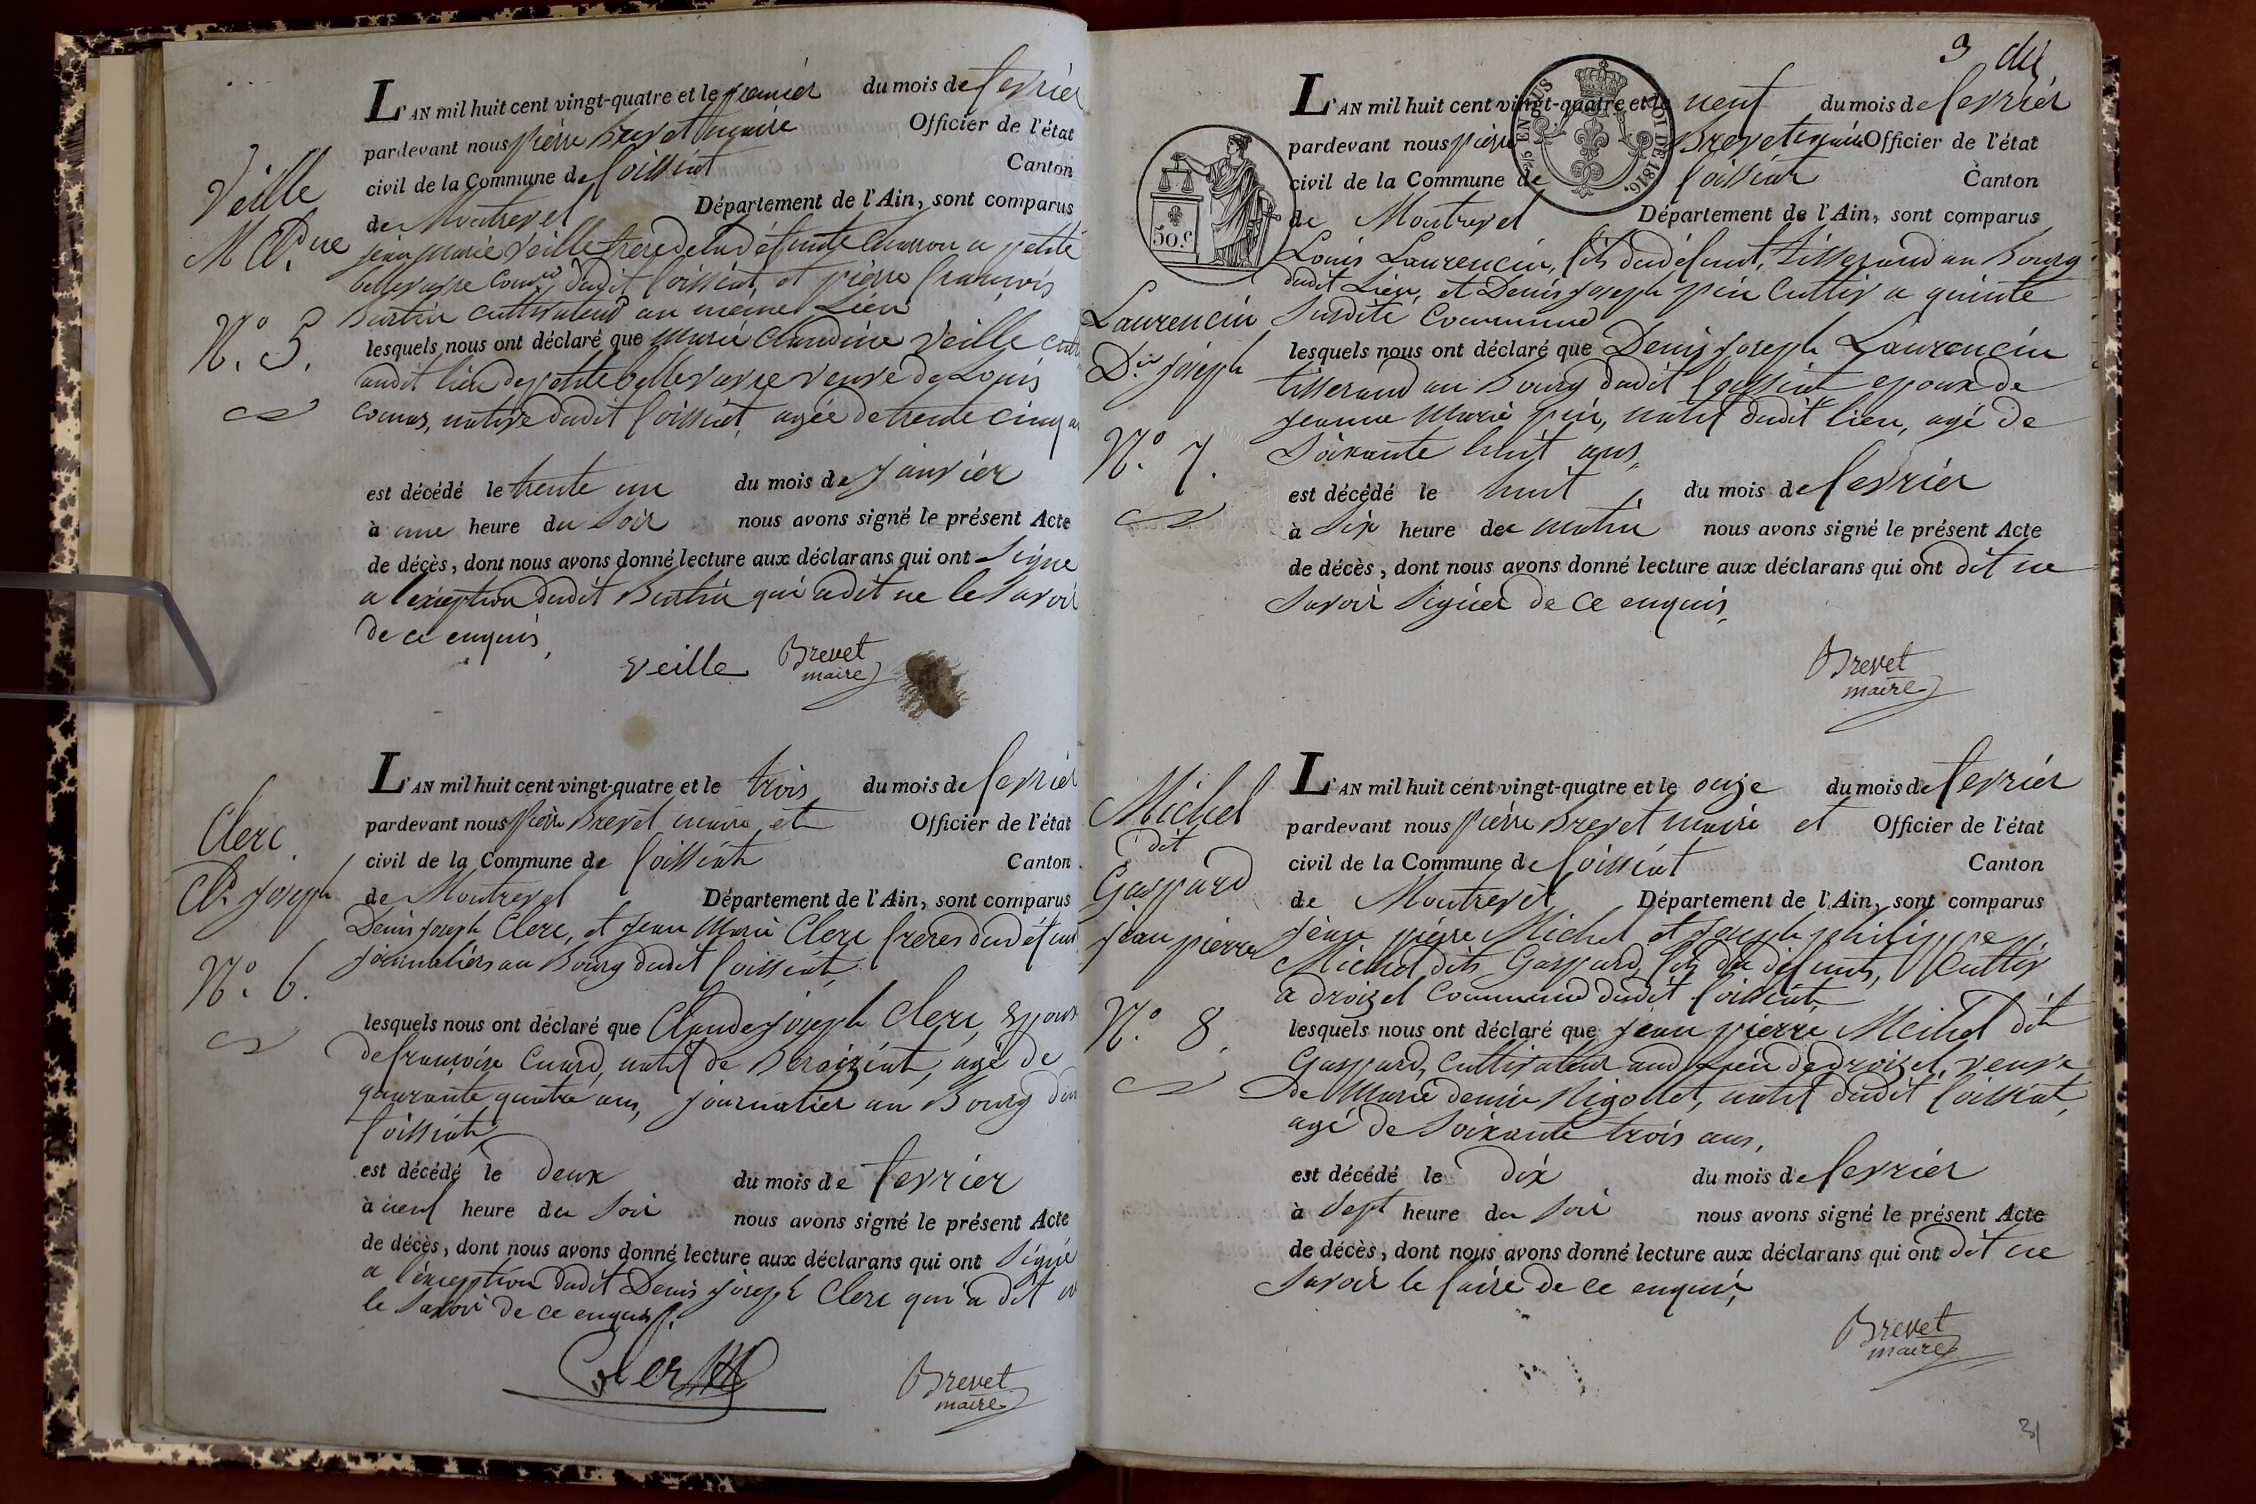 L'AN mil huit cent vingt-quatre et le premier du mois de fevrier
pardevant nous pierre Brevet maire Officier de l'état
civil de la Commune de foissiat Canton
de Montrevel Département de l'Ain, sont comparus
Veille
M Cl.ne
N.° 5.
jean marie Veille frere de la défunte charron a petite
bellevavre Com.ne dudit foissiat, et pierre francois
Burtin cultivateur au même Lieu
lesquels nous ont déclaré que marie claudine Veille
audit lieu de petite bellevavre veuve de Louis
comas, native dudit foissiat, agée de trente cinq
est décédé le trente un du mois de janvier
à une heure du soir nous avons signé le présent Acte
de décès, dont nous avons donné lecture aux déclarans qui ont signé
a l'exception dudit Burtin qui a dit ne le savoir
de ce enquis,
veille Brevet
maire
L'AN mil huit cent vingt-quatre et le trois du mois de fevrier
pardevant nous pierre Brevet maire et Officier de l'état
civil de la Commune de foissiat Canton
de Montrevel Département de l'Ain, sont comparus
Clerc
Cl. joseph
N.° 6.
Denis joseph Clerc, et jean Marie Clerc freres du défunt
journaliers au Bourg dudit foissiat,
lesquels nous ont déclaré que Claude joseph Clerc, Epoux
de françoise Cuard, natif de Beraiziat, agé de
quarante quatre ans, journalier au Bourg dud
foissiat
est décédé le deux du mois de fevrier
à neuf heure du soir nous avons signé le présent Acte
de décès, dont nous avons donné lecture aux déclarans qui ont signé
a l'exception dudit Denis joseph Clerc qui a dit ne
le savoir de ce enquis.
Clerc
Brevet
maire
3
L'AN mil huit cent vingt-quatre et le neuf du mois de fevrier
pardevant nous pierre Brevet maire Officier de l'état
civil de la Commune de foissiat Canton
de Montrevel Département de l'Ain, sont comparus
EN SUS LOI DE 1816.
50.C
Laurencin
D.is joseph
N.° 7.
Louis Laurencin, fils du défunt, tisserand au Bourg
dudit Lieu, et Denis joseph pin Cultiv a quinte
susdite Commune
lesquels nous ont déclaré que Denis joseph Laurencin
tisserand au Bourg dudit foissiat epoux de
jeanne Marie pin, natif dudit lieu, agé de
soixante huit ans,
est décédé le huit du mois de fevrier
à six heure du matin nous avons signé le présent Acte
de décès, dont nous avons donné lecture aux déclarans qui ont dit ne
savoir signer de ce enquis,
Brevet
maire
L'AN mil huit cent vingt-quatre et le onze du mois de fevrier
pardevant nous pierre Brevet maire et Officier de l'état
civil de la Commune de foissiat Canton
de Montrevel Département de l'Ain, sont comparus
Michel
dit
Gaspard
jean pierre
N.° 8.
jean pierre Michel et joseph philippe
Michel dits Gaspard, fils du défunt, Cultiv
a droizel Commune dudit foissiat
lesquels nous ont déclaré que jean pierre Michel dit
Gaspard, cultivateur aud Lieu de droizel, veuve
de Marie denise Nigollet, natif dudit foissiat,
agé de soixante trois ans,
est décédé le dix du mois de fevrier
à sept heure du soir nous avons signé le présent Acte
de décès, dont nous avons donné lecture aux déclarans qui ont dit ne
savoir le faire de ce enquis,
Brevet
maire
31